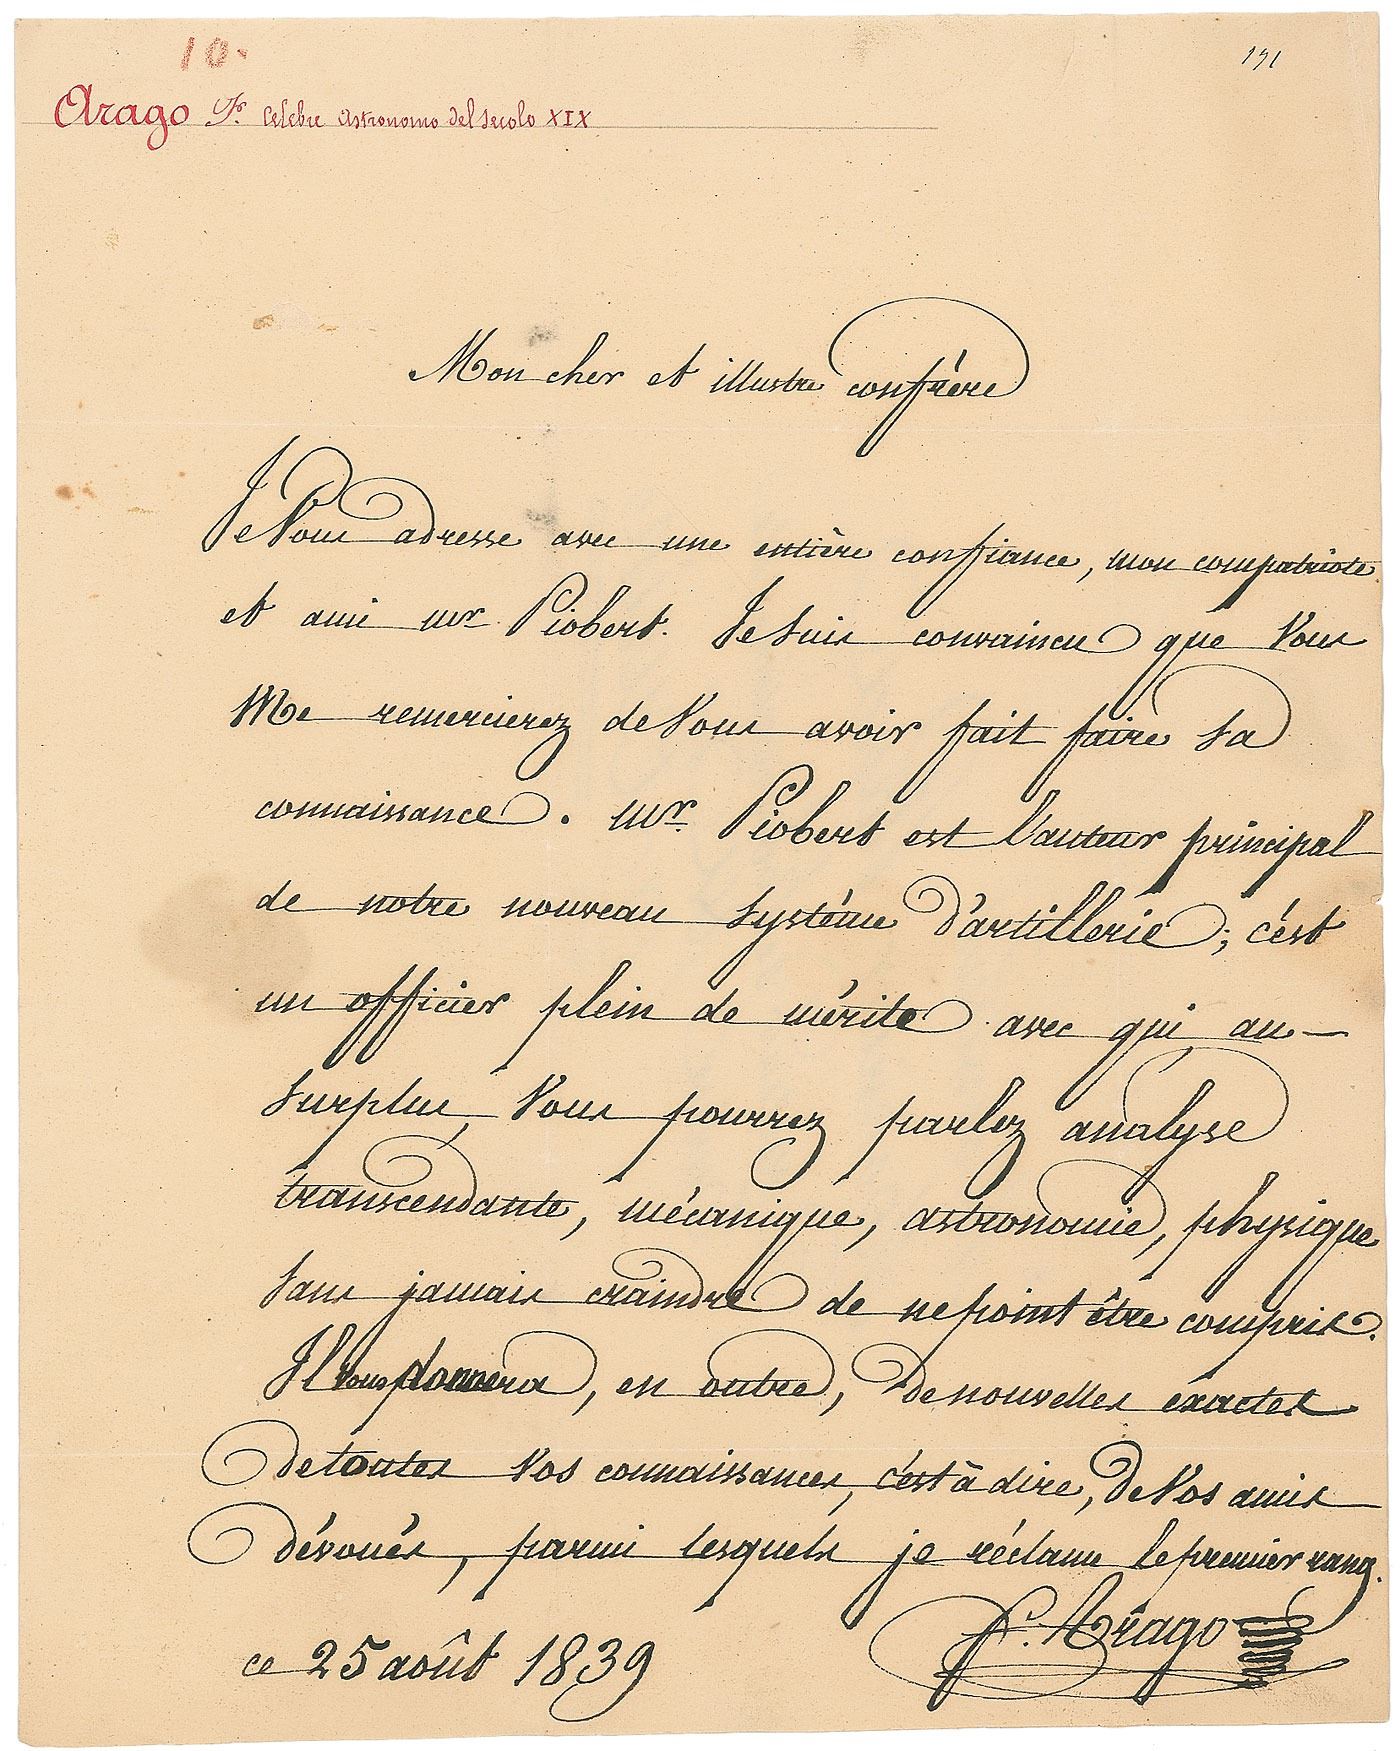 10.
191
Arago F. Celebre Astronomo del secolo XIX
Mon cher et illustre confrère
Je Vous adresse avec une entière confiance, mon compatriote
et ami mr Piobert. Je suis convaincu que Vous
Me remercierez de Vous avoir fait faire sa
connaissance. mr. Piobert est l'auteur principal
de notre nouveau systéme d'artillerie; c'est
un officier plein de mérite avec qui, au-
surplus, Vous pourrez parlez analyse
transcendante, mécanique, astronomie, physique
sans jamais craindre de ne point être compris.
Il vous donnera, en outre, de nouvelles exactes
de toutes Vos connaissances, c'est à dire, de Vos amis
dévoués, parmi lesquels je réclame le premier rang.
F. Arago
ce 25 août 1839